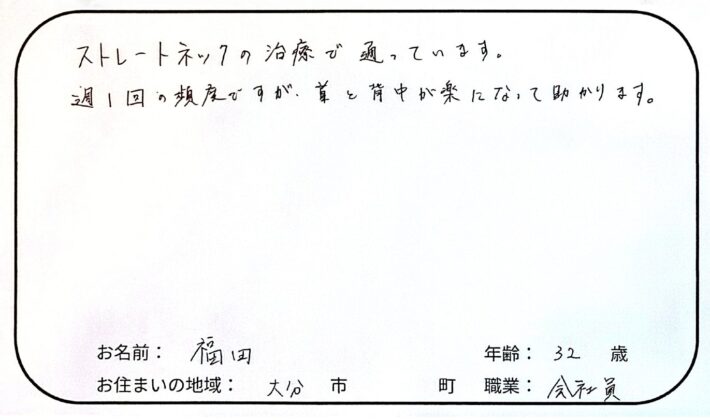 ストレートネックの治療で通っています。
週1回の頻度ですが、首と背中が楽になって助かります。
お名前： 福田 年齢： 32 歳
お住まいの地域： 大分 市 町 職業： 会社員